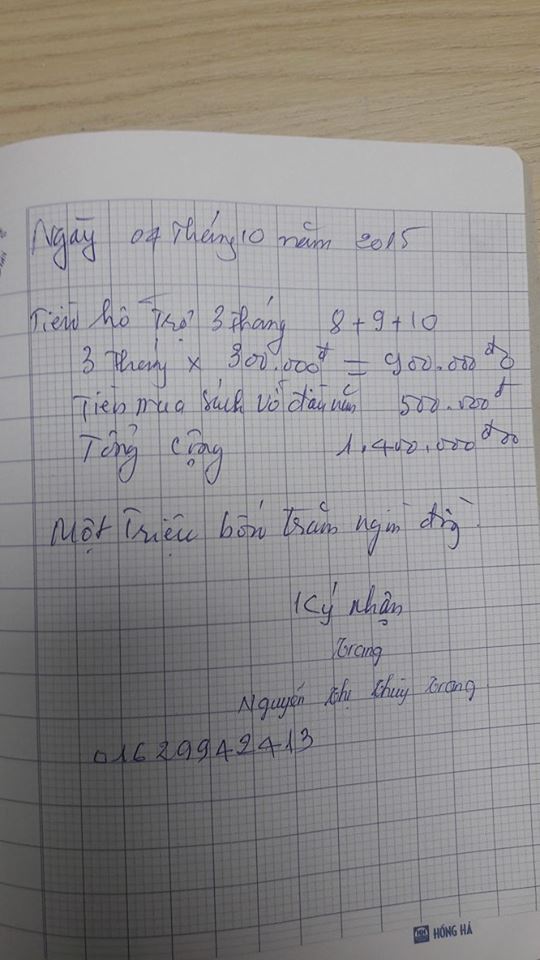 Ngày 04 Tháng 10 năm 2015
Tiền hỗ Trợ 3 Tháng 8 + 9 + 10
3 Tháng x 300.000đ = 900.000đ
Tiền mua Sách Vở đầu năm 500.000đ
Tổng Cộng 1.400.000đ
Một Triệu bốn Trăm ngìn đồng.
Ký nhận
Trang
Nguyễn Thị Thùy Trang
01629942413
HỒNG HÀ